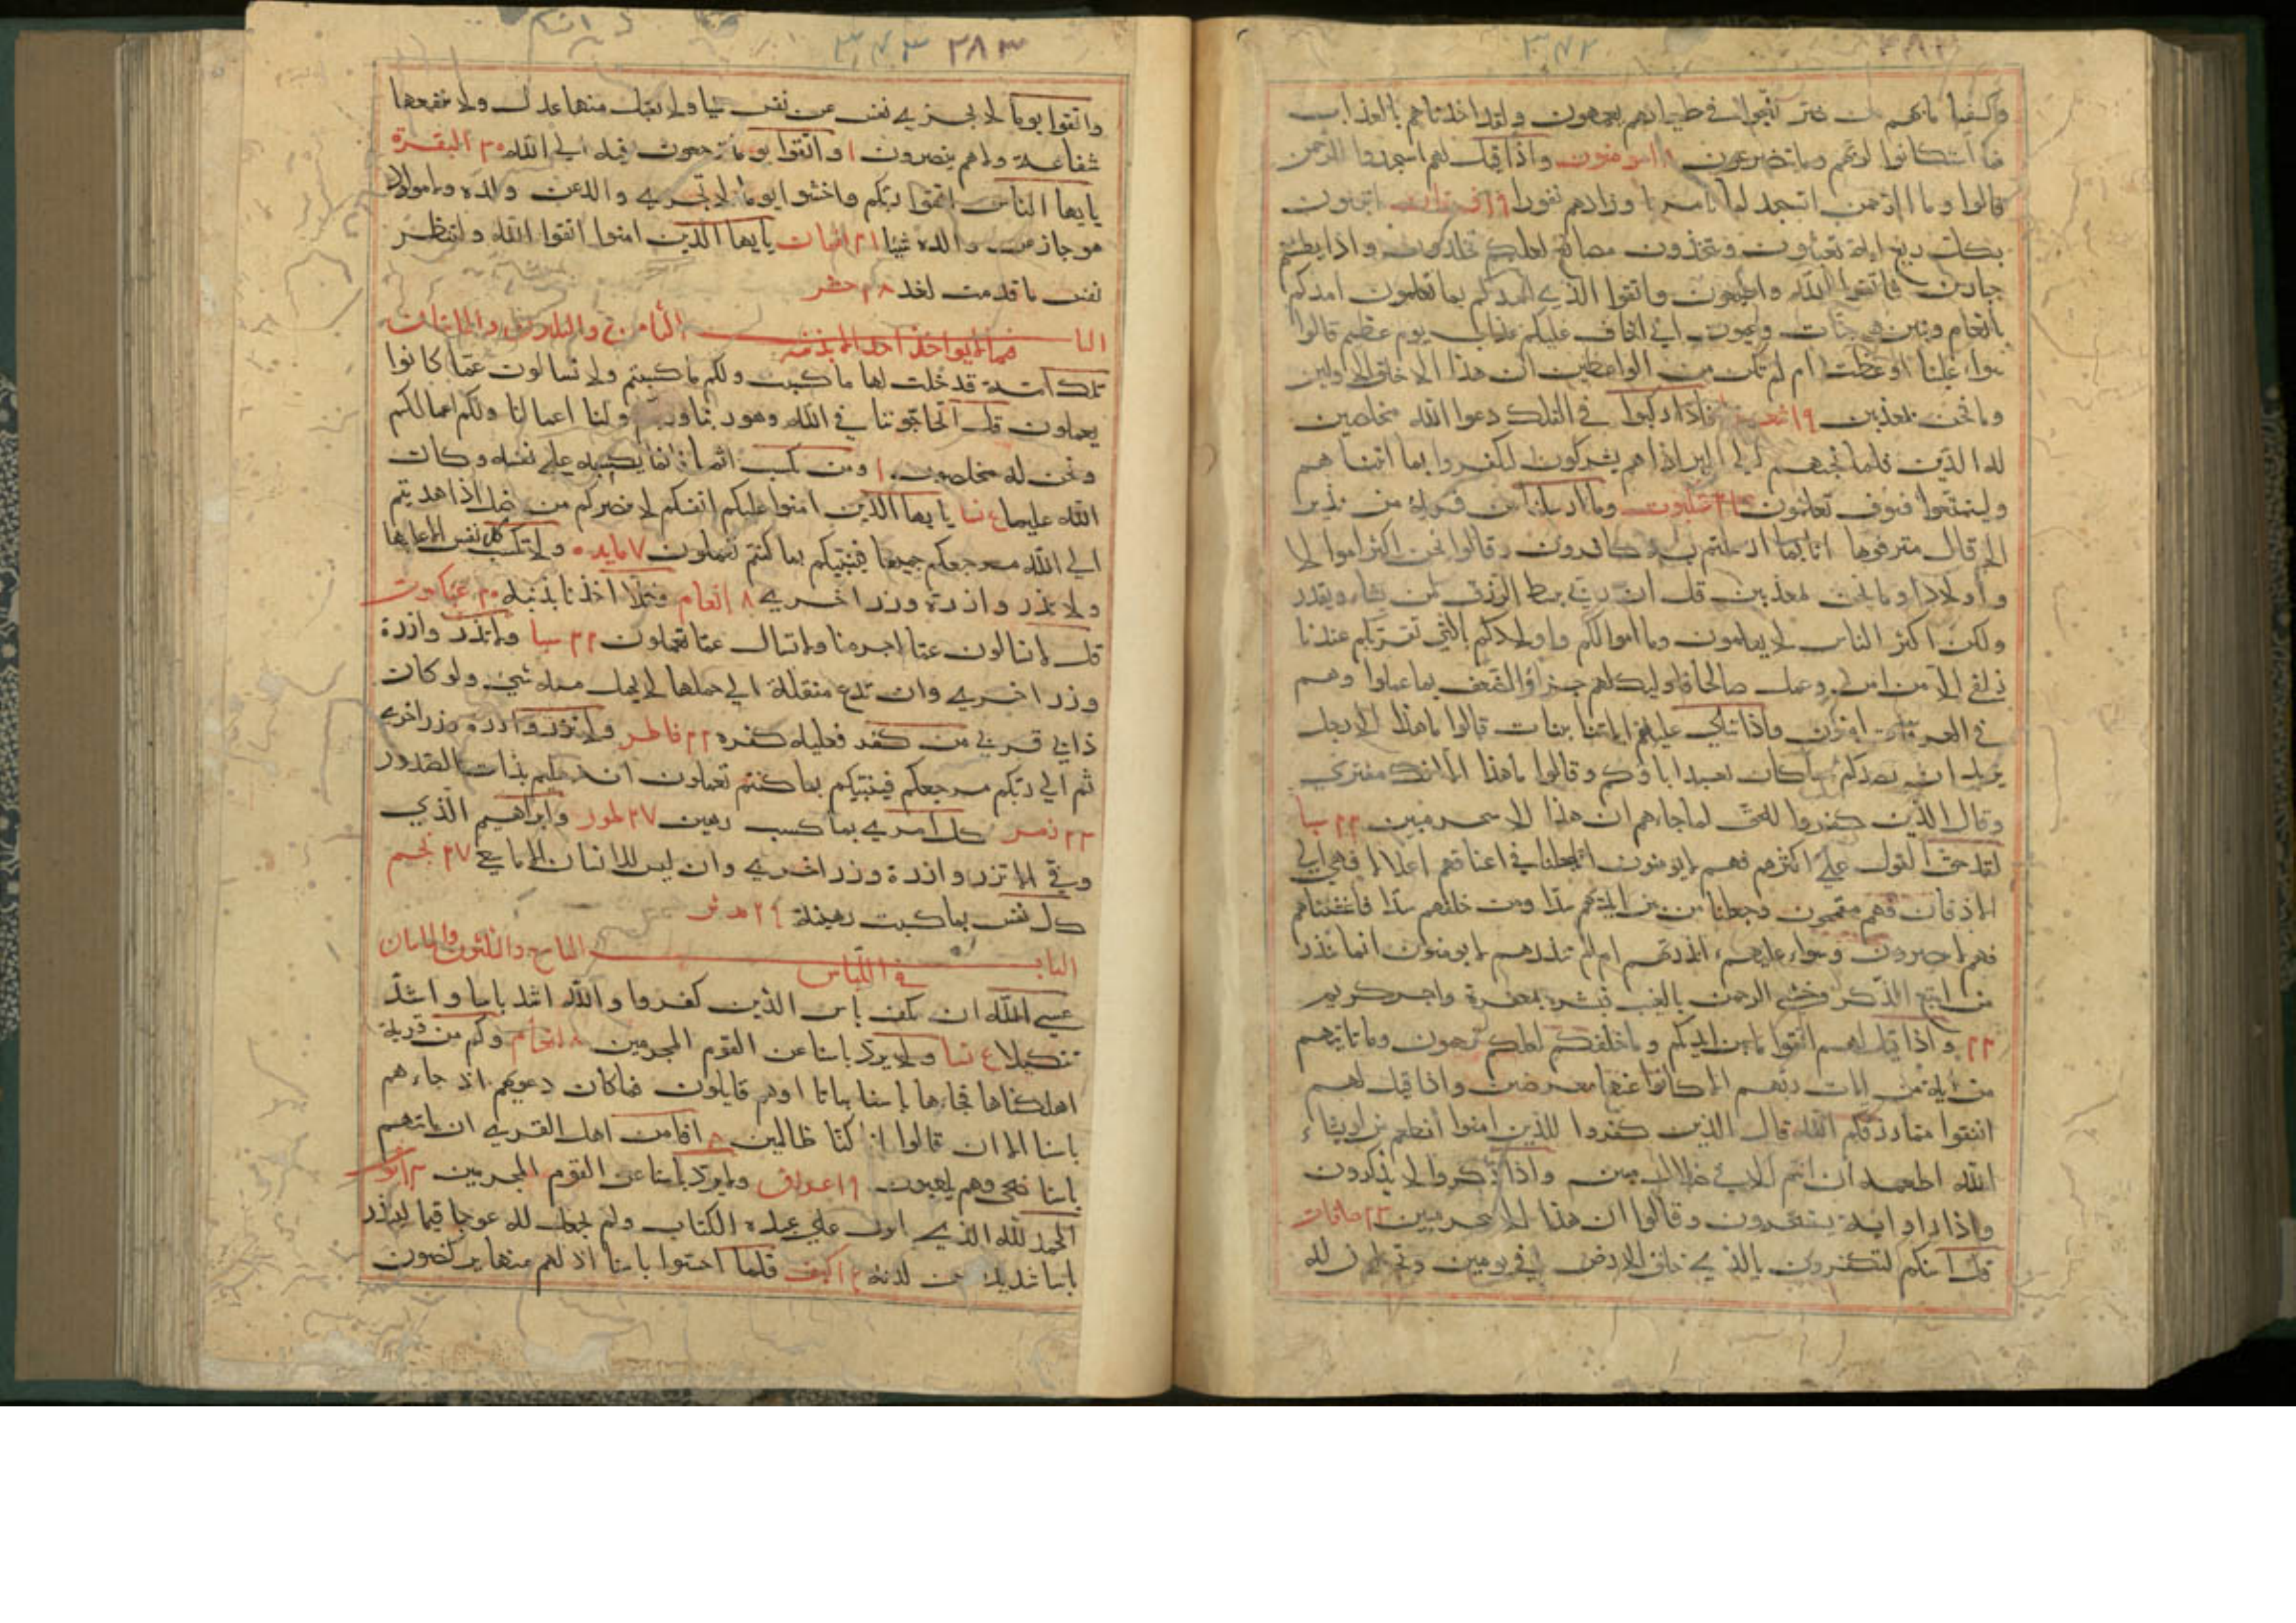 ٣٧٢
وكشفنا ما بهم من ضر للجوا في طغيانهم يعمهون ولقد اخذناهم بالعذاب
فما استكانوا لربهم وما يتضرعون ١٨ مومنون واذا قيل لهم اسجدوا للرحمن
قالوا وما الرحمن انسجد لما تامرنا وزادهم نفورا ١٩ فرقان اتبنون
بكل ريع اية تعبثون وتتخذون مصانع لعلكم تخلدون واذا بطشتم
جبارين فاتقوا الله واطيعون واتقوا الذي امدكم بما تعلمون امدكم
بانعام وبنين وجنات وعيون اني اخاف عليكم عذاب يوم عظيم قالوا
سواء علينا اوعظت ام لم تكن من الواعظين ان هذا الا خلق الاولين
وما نحن بمعذبين ١٩ شعرا فاذا ركبوا في الفلك دعوا الله مخلصين
له الدين فلما نجيهم الي البر اذا هم يشركون ليكفروا بما اتيناهم
وليتمتعوا فسوف تعلمون ٢١ عنكبوت وما ارسلنا في قرية من نذير
الا قال مترفوها انا بما ارسلتم به كافرون وقالوا نحن اكثر اموالا
واولادا وما نحن بمعذبين قل ان ربي يبسط الرزق لمن يشاء ويقدر
ولكن اكثر الناس لا يعلمون وما اموالكم ولا اولادكم بالتي تقربكم عندنا
زلفي الا من امن وعمل صالحا فاوليك لهم جزاؤ الضعف بما عملوا وهم
في الغرفات امنون واذا تتلي عليهم اياتنا بينات قالوا ما هذا الا رجل
يريد ان يصدكم عما كان يعبد اباؤكم وقالوا ما هذا الا افك مفتري
وقال الذين كفروا للحق لما جاءهم ان هذا الا سحر مبين ٢٢ سبا
لقد حق القول علي اكثرهم فهم لا يومنون انا جعلنا في اعناقهم اغلالا فهي الي
الاذقان فهم مقمحون وجعلنا من بين ايديهم سدا ومن خلفهم سدا فاغشيناهم
فهم لا يبصرون وسواء عليهم ءانذرتهم ام لم تنذرهم لا يومنون انما تنذر
من اتبع الذكر وخشي الرحمن بالغيب فبشره بمغفرة واجر كريم
٢٢ واذا قيل لهم اتقوا ما بين ايديكم وما خلفكم لعلكم ترحمون وما تاتيهم
من اية من ايات ربهم الا كانوا عنها معرضين واذا قيل لهم
انفقوا مما رزقكم الله قال الذين كفروا للذين امنوا انطعم من لو يشاء
الله اطعمه ان انتم الا في ضلال مبين واذا ذكروا لا يذكرون
واذا راوا اية يستسخرون وقالوا ان هذا الا سحر مبين ٢٣ صافات
قل ائنكم لتكفرون بالذي خلق الارض في يومين وتجعلون له
٣٧٣ ٣٨٣
واتقوا يوما لا يجزي نفس عن نفس شيا ولا يقبل منها عدل ولا تنفعها
شفاعة ولا هم ينصرون ١ واتقوا يوما ترجعون فيه الي الله ٣٠ البقرة
يايها الناس اتقوا ربكم واخشوا يوما لا يجزي والد عن ولده ولا مولود
هو جاز عن والده شيئا ٢١ لقمان يايها الذين امنوا اتقوا الله ولتنظر
نفس ما قدمت لغد ٢٨ حشر
الباب الثامن والثلاثون والمايتان
فيما لا يواخذ احد الا بذنبه
تلك امة قد خلت لها ما كسبت ولكم ما كسبتم ولا تسالون عما كانوا
يعملون قل اتحاجوننا في الله وهو ربنا وربكم ولنا اعمالنا ولكم اعمالكم
ونحن له مخلصون ١ ومن يكسب اثما فانما يكسبه علي نفسه وكان
الله عليما ٤ نسا يايها الذين امنوا عليكم انفسكم لا يضركم من ضل اذا هديتم
الي الله مرجعكم جميعا فينبيكم بما كنتم تعملون ٧ مايده ولا تكسب كل نفس الا عليها
ولا تزر وازرة وزر اخري ٨ انعام فكلا اخذنا بذنبه ٢٠ عنكبوت
قل لا تسالون عما اجرمنا ولا نسال عما تعملون ٢٢ سبا ولا تزر وازرة
وزر اخري وان تدع مثقلة الي حملها لا يحمل منه شي ولو كان
ذا قربي من كفر فعليه كفره ٢٢ فاطر ولا تزر وازرة وزر اخري
ثم الي ربكم مرجعكم فينبيكم بما كنتم تعملون انه عليم بذات الصدور
٢٣ زمر كل امري بما كسب رهين ٢٧ طور وابراهيم الذي
وفي الا تزر وازرة وزر اخري وان ليس للانسان الا ما سعي ٢٧ نجم
كل نفس بما كسبت رهينة ٢٩ مدثر
الباب التاسع والثلثون والمايتان
في الباس
عسي الله ان يكف باس الذين كفروا والله اشد باسا واشد
تنكيلا ٤ نسا ولا يرد باسنا عن القوم المجرمين ٨ انعام وكم من قرية
اهلكناها فجاءها باسنا بياتا اوهم قايلون فما كان دعويهم اذ جاءهم
باسنا الا ان قالوا انا كنا ظالمين ٨ افامن اهل القري ان ياتيهم
باسنا ضحي وهم يلعبون ٩ اعراف ولا يرد باسنا عن القوم المجرمين
الحمد لله الذي انزل علي عبده الكتاب ولم يجعل له عوجا قيما لينذر
باسا شديدا من لدنه كهف فلما احسوا باسنا اذا هم منها يركضون